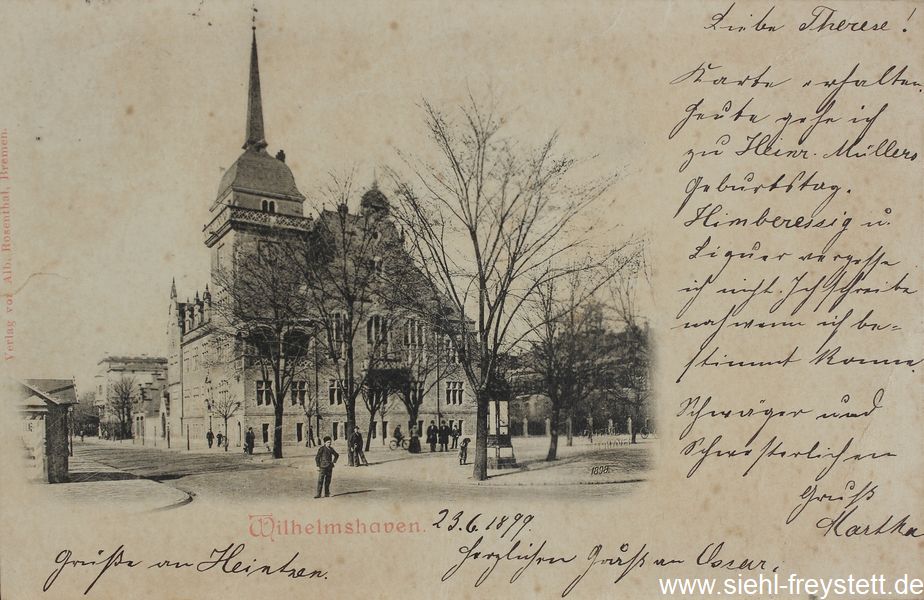 Liebe Therese!
Karte erhalten,
heute gehe ich
zu Heinr. Müllers
Geburtstag.
Himberessig u.
Liquer vergesse
ich nicht. Ich schreibe
noch wenn ich be-
stimmt komme.
Schwäger und
Schwesterlichen
Gruß
Martha
Verlag von Alb. Rosenthal, Bremen.
1898.
Wilhelmshaven.
23.6.1899.
Grüße an Heintzen.
Herzlichen Gruß an Oscar.
www.siehl-freystett.de